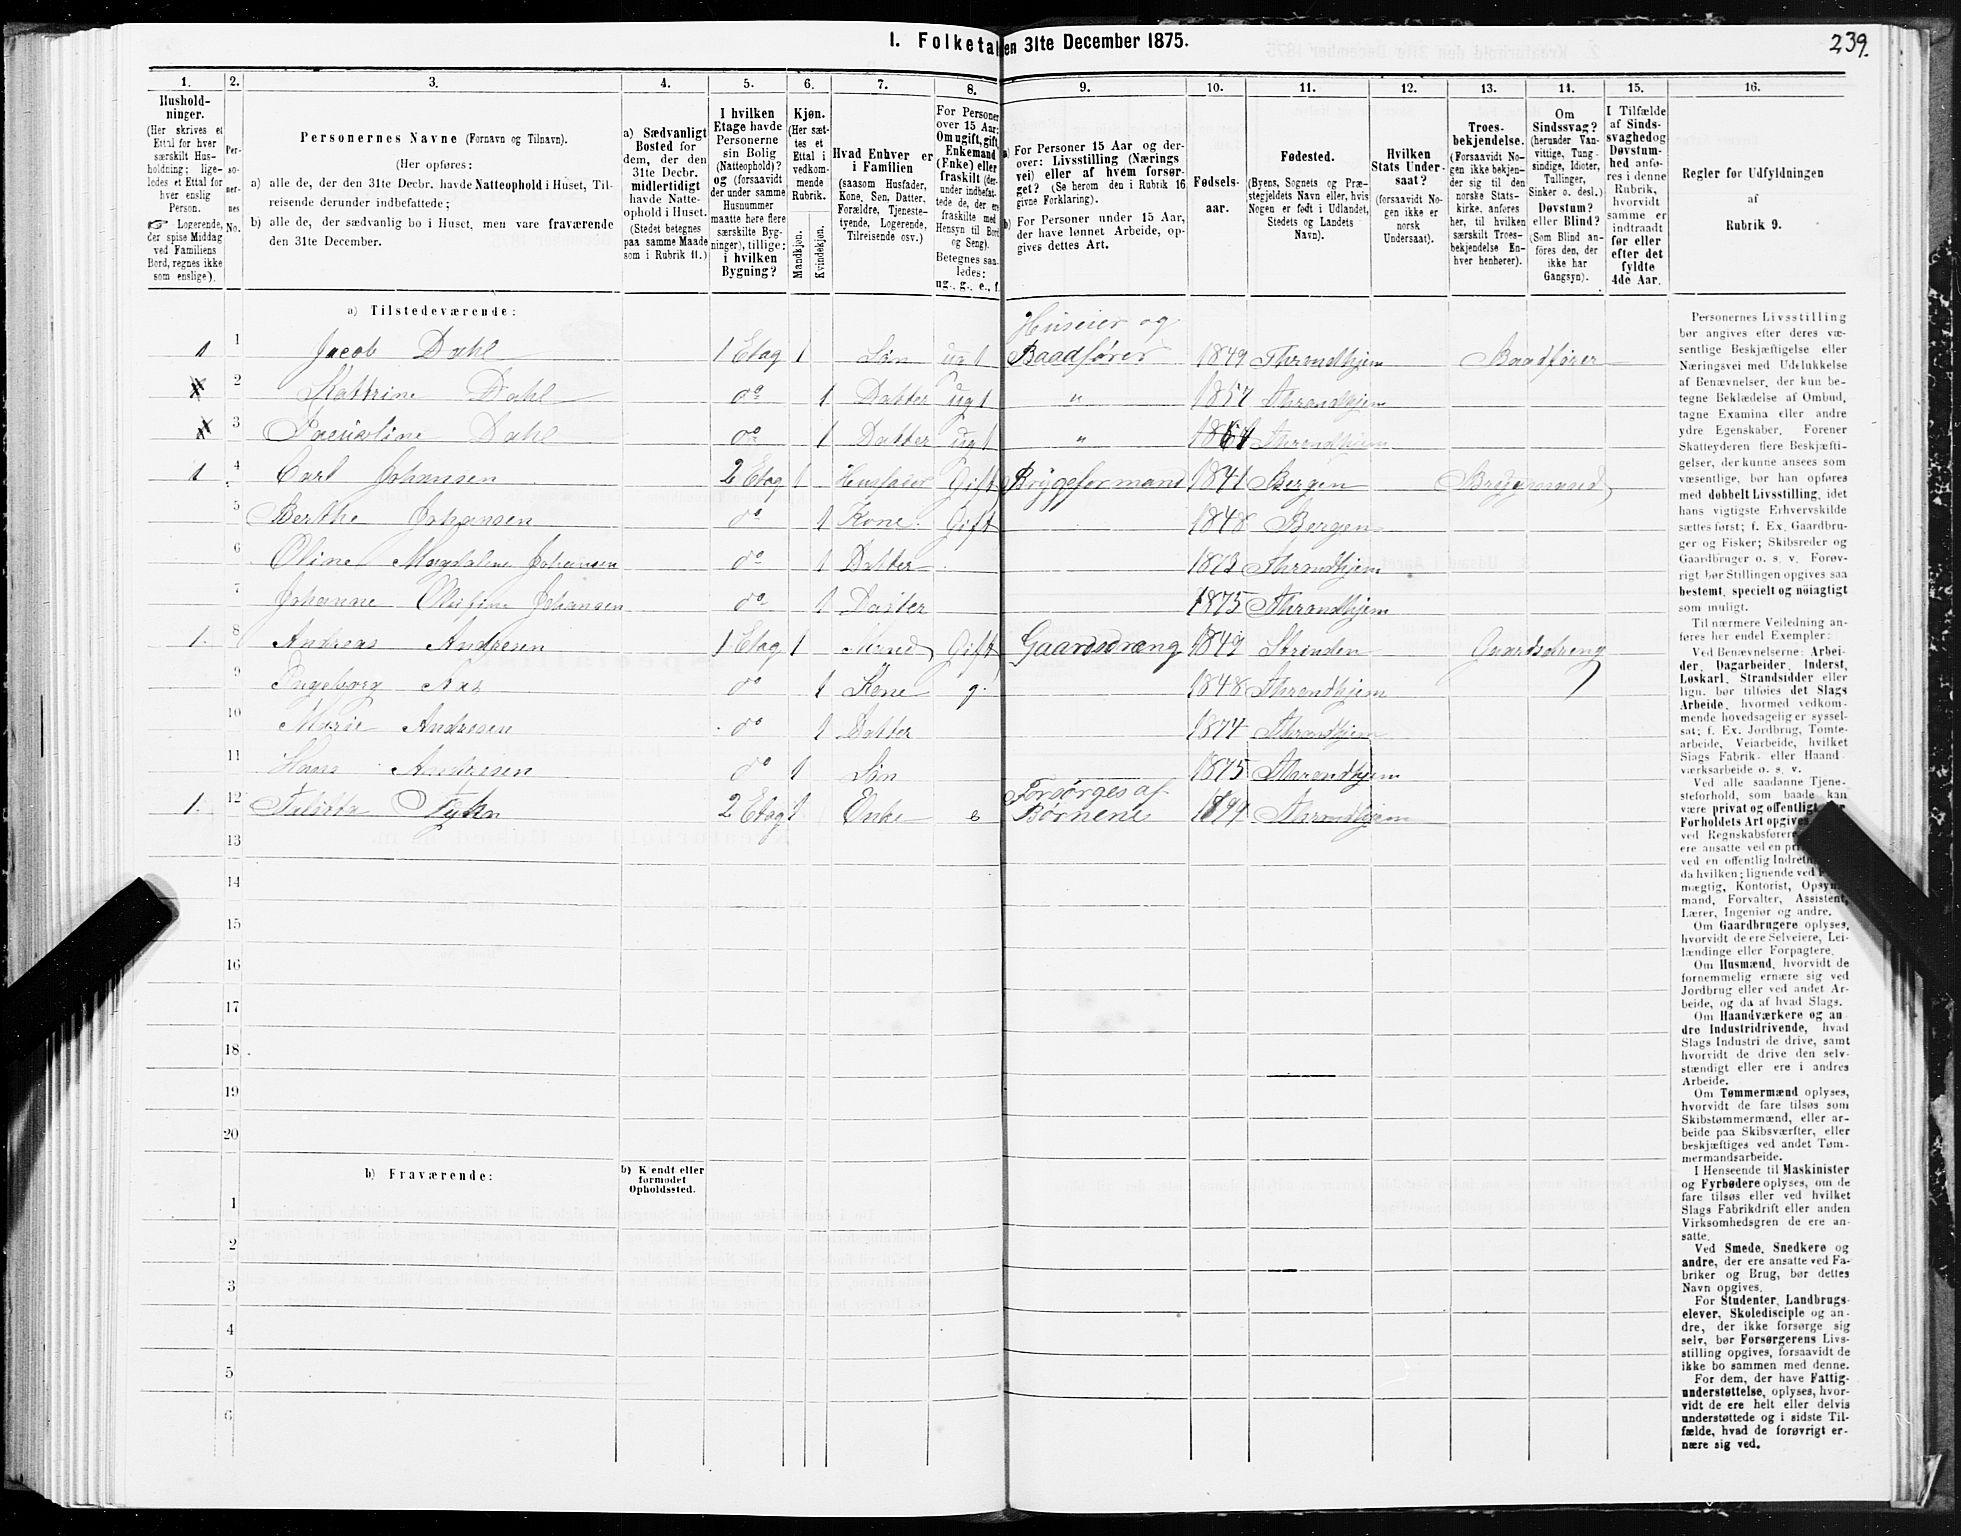 239.
I. Folketal den 31te December 1875.
1. 2. 3. 4. 5. 6. 7. 8. 9. 10. 11. 12. 13. 14. 15. 16.
Hushold-
ninger.
(Her skrives et
Ettal for hver
særskilt Hus-
holdning; lige-
ledes et Ettal for
hver enslig
Person.
☞ Logerende,
der spise Middag
ved Familiens
Bord, regnes ikke
som enslige).
Per-
so-
ner-
nes
No.
Personernes Navne (Fornavn og Tilnavn).
(Her opføres:
a) alle de, der den 31te Decbr. havde Natteophold i Huset, Til-
reisende derunder indbefattede;
b) alle de, der sædvanlig bo i Huset, men vare fraværende
den 31te December.
a) Sædvanligt
Bosted for
dem, der den
31te Decbr.
midlertidigt
havde Natte-
ophold i Huset.
(Stedet betegnes
paa samme Maade
som i Rubrik 11.)
I hvilken
Etage havde
Personerne
sin Bolig
(Natteophold)?
og (forsaavidt
der under samme
Husnummer
maatte høre flere
særskilte Byg-
ninger), tillige:
i hvilken
Bygning?
Kjøn.
(Her sæt-
tes et
Ettal i
vedkom-
mende
Rubrik.
Mandkjøn.
Kvindekjøn.
Hvad Enhver er
i Familien
(saasom Husfader,
Kone, Søn, Datter,
Forældre, Tjeneste-
tyende, Logerende,
Tilreisende osv.)
For Personer
over 15 Aar:
Om ugift, gift,
Enkemand
(Enke) eller
fraskilt (der-
under indbefat-
tede de, der ere
fraskilte med
Hensyn til Bord
og Seng).
Betegnes saa-
ledes:
ug., g., e., f.
a) For Personer 15 Aar og der-
over: Livsstilling (Nærings
vei) eller af hvem forsør-
get? (Se herom den i Rubrik 16
givne Forklaring).
b) For Personer under 15 Aar,
der have lønnet Arbeide, op-
gives dettes Art.
Fødsels-
aar.
Fødested.
(Byens, Sognets og Præ-
stegjeldets Navn eller, hvis
Nogen er født i Udlandet,
Stedets og Landets
Navn).
Hvilken
Stats Under-
saat?
(forsaavidt No-
gen ikke er
norsk
Undersaat).
Troes-
bekjendelse.
(Forsaavidt No-
gen ikke bekjen-
der sig til den
norske Stats-
kirke, anføres
her, til hvilken
særskilt Troes-
bekjendelse En-
hver henhører).
Om
Sindssvag?
(herunder Van-
vittige, Tung-
sindige, Idioter,
Tullinger,
Sinker o. desl.)
Døvstum?
eller Blind?
(Som Blind an-
føres den, der
ikke har
Gangsyn).
I Tilfælde
af Sinds-
svaghed og
Døvstum-
hed anfø-
res i denne
Rubrik,
hvorvidt
samme er
indtraadt
før eller
efter det
fyldte
4de Aar.
Regler for Udfyldningen
af
Rubrik 9.
a) Tilstedeværende:
1 1 Jacob Dahl 1 Etag 1 Søn ugt Huseier og
Baadfører 1849 Thrandhjem Baadfører
2 Kattrine Dahl do 1 Datter ugt " 1857 Thrandhjem
3 Dahl do 1 Datter ugt " Thrandhjem
1 4 Carl Johansen 2 Etag 1 Husfader Gift Bryggeformand 1841 Bergen Bryggemand
5 Berthe Johansen do 1 Kone. Gift 1848 Bergen
6 Oline Magdaline Johansen do 1 Datter 1873 Thrandhjem
7 Johanne Olufine Johansen do 1 Datter 1875 Thrandhjem
1. 8 Andreas Andresen 1 Etag 1 Mand Gift Gaardsdræng 1849 Strinden Gaardsdreng
9 Ingeborg Aas do 1 Kone g. 1848 Thrandhjem
10 Marie Andresen do 1 Datter 1874 Thrandhjem
11 Hans Andresen do 1 Søn 1875 Thrandhjem
1. 12 2 Etag 1 Enke e Forsørges af
Børnene 1799 Thrandhjem
13
14
15
16
17
18
19
20
b) Fraværende:
b) Kjendt eller
formodet
Opholdssted.
1
2
3
4
5
6
Personernes Livsstilling
bør angives efter deres væ-
sentlige Beskjæftigelse eller
Næringsvei med Udelukkelse
af Benævnelser, der kun be-
tegne Beklædelse af Ombud,
tagne Examina eller andre
ydre Egenskaber. Forener
Skatteyderen flere Beskjæfti-
gelser, der kunne ansees som
væsentlige, bør han opføres
med dobbelt Livsstilling, idet
hans vigtigste Erhvervskilde
sættes først; f. Ex. Gaardbru-
ger og Fisker; Skibsreder og
Gaardbruger o. s. v. Forøv-
rigt bør Stillingen opgives saa
bestemt, specielt og nöiagtigt
som muligt.
Til nærmere Veiledning an-
føres her endel Exempler:
Ved Benævnelserne: Arbei-
der, Dagarbeider, Inderst,
Løskarl, Strandsidder eller
lign. bør tilføies det Slags
Arbeide, hvormed vedkom-
mende hovedsagelig er syssel-
sat; f. Ex. Jordbrug, Tomte-
arbeide, Veiarbeide, hvilket
Slags Fabrik- eller Haand-
værksarbeide o. s. v.
Ved alle saadanne Tjene-
steforhold, som baade kan
være privat og offentligt
Forholdets Art opgives
ved Regnskabsfører
ere ansatte ved en
ved en offentlig
da hvilken; lignende ved
mægtig, Kontorist, Opsyns-
mand, Forvalter, Assistent,
Lærer, Ingeniør og andre.
Om Gaardbrugere oplyses,
hvorvidt de ere Selveiere, Lei-
lændinge eller Forpagtere.
Om Husmænd, hvorvidt de
fornemmelig ernære sig ved
Jordbrug eller ved andet Ar-
beide, og da af hvad Slags.
Om Haandværkere og an-
dre Industridrivende, hvad
Slags Industri de drive, samt
hvorvidt de drive den selv-
stændigt eller ere i andres
Arbeide.
Om Tømmermænd oplyses,
hvorvidt de fare tilsøs som
Skibstømmermænd, eller ar-
beide paa Skibsværfter, eller
beskjæftiges ved andet Tøm-
mermandsarbeide.
I Henseende til Maskinister
og Fyrbødere oplyses, om de
fare tilsøs eller ved hvilket
Slags Fabrikdrift eller anden
Virksomhedsgren de ere an-
satte.
Ved Smede, Snedkere og
andre, der ere ansatte ved Fa-
briker og Brug, bør dettes
Navn opgives.
For Studenter, Landbrugs-
elever, Skoledisciple og an-
dre, der ikke forsørge sig
selv, bør Forsørgerens Livs-
stilling opgives, forsaavidt de
ikke bo sammen med denne.
For dem, der have Fattig-
understøttelse, oplyses, hvor-
vidt de ere helt eller delvis
understøttede og i sidste Til-
fælde, hvad de forøvrigt er-
nære sig ved.